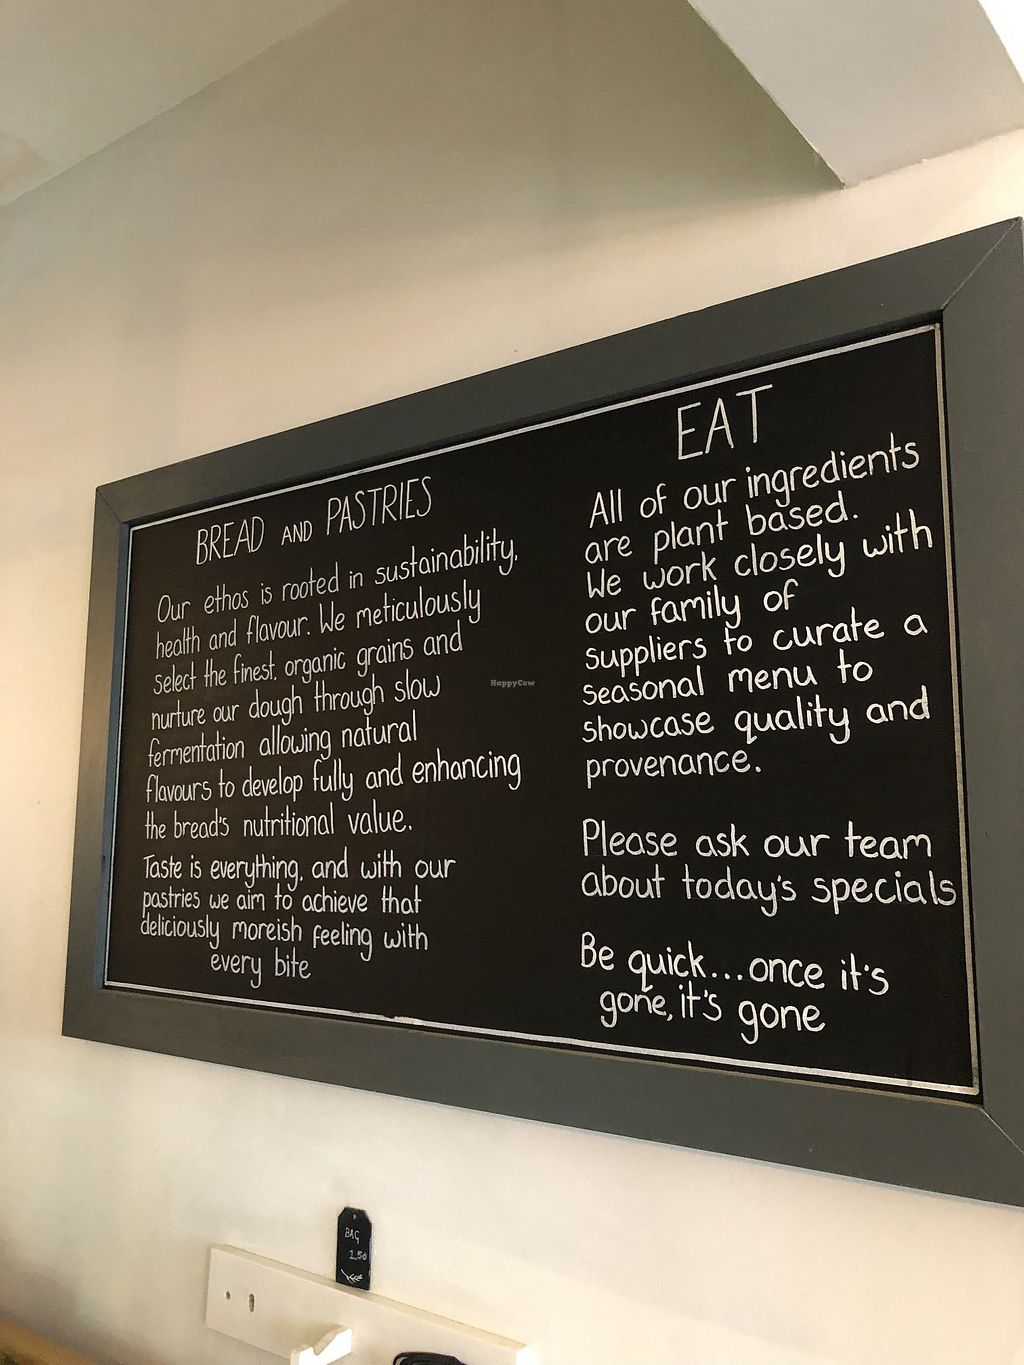 BREAD AND PASTRIES
Our ethos is rooted in sustainability,
health and flavour. We meticulously
select the finest, organic grains and
nurture our dough through slow
fermentation allowing natural
flavours to develop fully and enhancing
the bread's nutritional value.
Taste is everything, and with our
pastries we aim to achieve that
deliciously moreish feeling with
every bite
EAT
All of our ingredients
are plant based.
We work closely with
our family of
suppliers to curate a
seasonal menu to
showcase quality and
provenance.
Please ask our team
about today's specials
Be quick...once it's
gone, it's gone
HappyCow
BAG
1.50